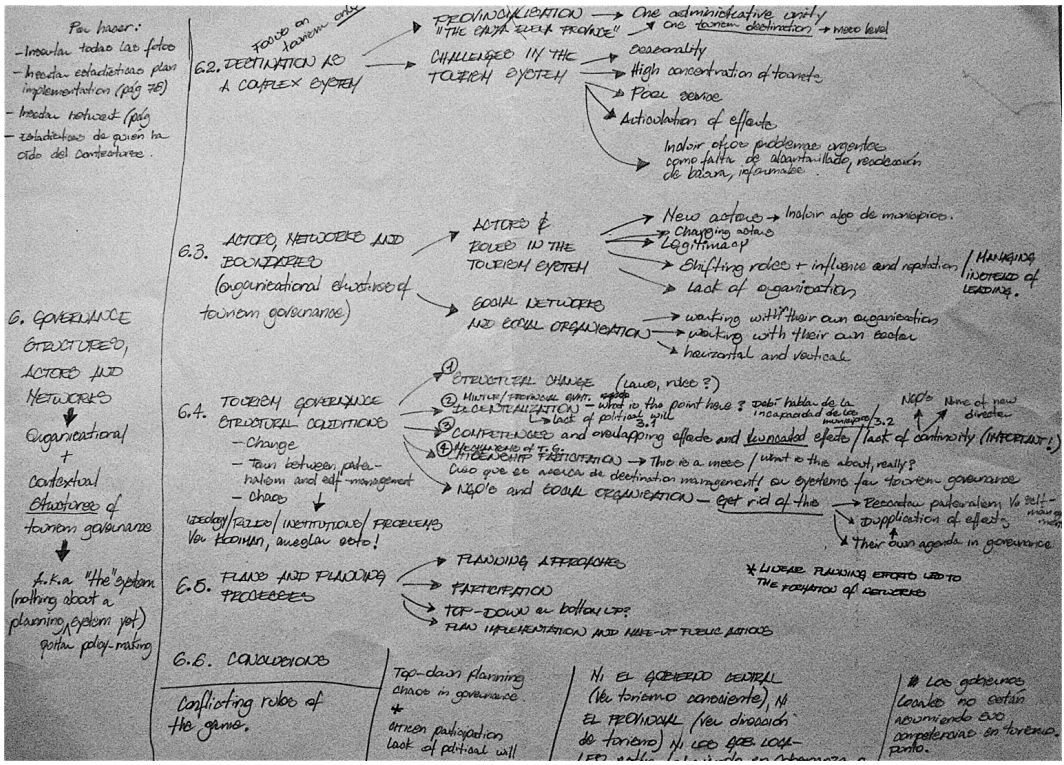 Por hacer:
- Insertar todas las fotos
- Insertar estadísticas plan
implementation (pág 78)
- Insertar network (pág
- Estadísticas de quién ha
oído del
6. GOVERNANCE
STRUCTURES,
ACTORS AND
NETWORKS
Organisational
+
Contextual
Structures of
tourism governance
A.k.a "the" system
(nothing about a
planning system yet)
policy-making
6.2. DESTINATION AS
A COMPLEX SYSTEM
Focus on
tourism only
PROVINCIALISATION
"THE SANTA ELENA PROVINCE"
One administrative unity
One tourism destination → meso level
CHALLENGES IN THE
TOURISM SYSTEM
Seasonality
High concentration of tourists
Poor service
Articulation of efforts
Incluir otros problemas urgentes
como falta de alcantarillado, recolección
de basura, informales.
6.3. ACTORS, NETWORKS AND
BOUNDARIES
(organisational structures of
tourism governance)
ACTORS &
ROLES IN THE
TOURISM SYSTEM
New actors → Incluir algo de municipios.
Changing actors
Legitimacy
Shifting roles + influence and reputation / MANAGING
INSTEAD OF
LEADING.
Lack of organisation
SOCIAL NETWORKS
AND SOCIAL ORGANISATION
working with their own organisation
working with their own sector
horizontal and vertical
6.4. TOURISM GOVERNANCE
STRUCTURAL CONDITIONS
- Change
- Torn between pater-
nalism and self-management
- Chaos
Ideology/RULES/INSTITUTIONS/PROBLEMS
Ver KOOIMAN, arreglar esto!
① STRUCTURAL CHANGE (Laws, rules?)
② MINTUR/PROVINCIAL GVMT.
DECENTRALIZATION - what is the point here? Debí hablar de la
incapacidad de los
municipios/3.2
Lack of political will
3.1
③ COMPETENCES and overlapping effects and truncated efforts / lack of continuity (IMPORTANT!)
NGO's
None of new
director
④ MECHANISMS of T.G.
CITIZENSHIP PARTICIPATION → This is a mess / what is this about, really?
Creo que es acerca de destination management / or systems for tourism governance
NGO's and SOCIAL ORGANISATION - Get rid of this
Rescatar paternalism Vs self-
management
Dupplication of efforts
Their own agenda in governance
6.5. PLANS AND PLANNING
PROCESSES
PLANNING APPROACHES
PARTICIPATION
TOP-DOWN or bottom up?
PLAN IMPLEMENTATION AND MAKE-UP PUBLIC ACTIONS
* LINEAR PLANNING EFFORTS LED TO
THE FORMATION OF NETWORKS
6.6. CONCLUSIONS
Conflicting rules of
the game.
Top-down planning
chaos in governance.
*
citizen participation
lack of political will
NI EL GOBIERNO CENTRAL
(Ver turismo consciente), NI
EL PROVINCIAL (Ver dirección
de turismo) NI LOS GOB. LOCA-
LES
# Los gobiernos
locales no están
asumiendo sus
competencias en turismo.
punto.